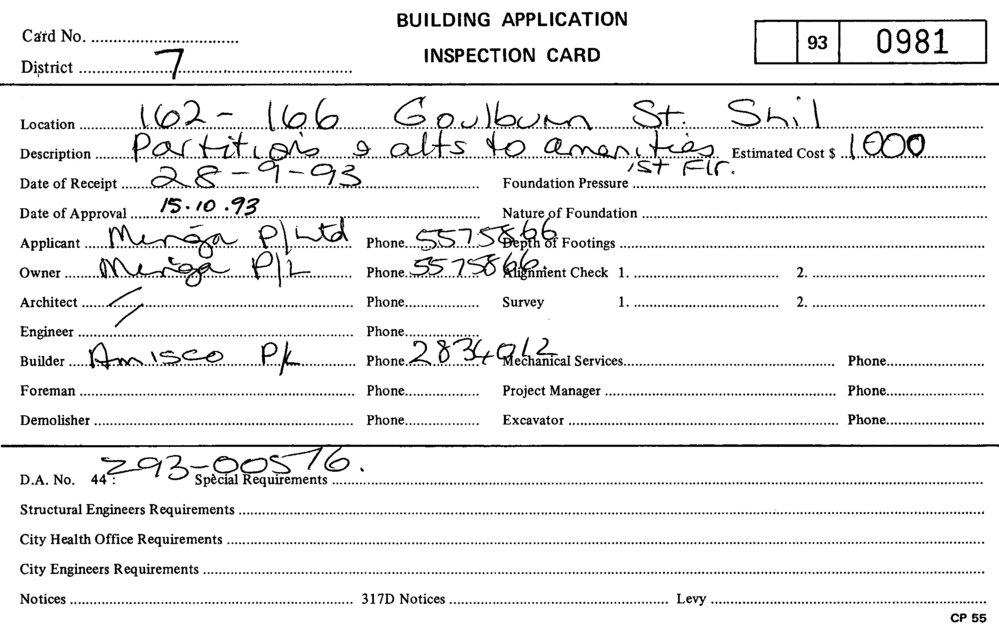 BUILDING APPLICATION
INSPECTION CARD
Card No.
93 0981
District 7
Location 162 - 166 Goulburn St. Shil
Description Partitions & alts to amenities 1st Flr. Estimated Cost $ 1000
Date of Receipt 28-9-93 Foundation Pressure
Date of Approval 15.10.93 Nature of Foundation
Applicant P/Ltd Phone 5575866 Depth of Footings
Owner P/L Phone 5575866 Alignment Check 1. 2.
Architect / Phone Survey 1. 2.
Engineer Phone
Builder Amisco P/L Phone 2834012 Mechanical Services Phone
Foreman Phone Project Manager Phone
Demolisher Phone Excavator Phone
D.A. No. 44: Z93-00576. Special Requirements
Structural Engineers Requirements
City Health Office Requirements
City Engineers Requirements
Notices 317D Notices Levy
CP 55